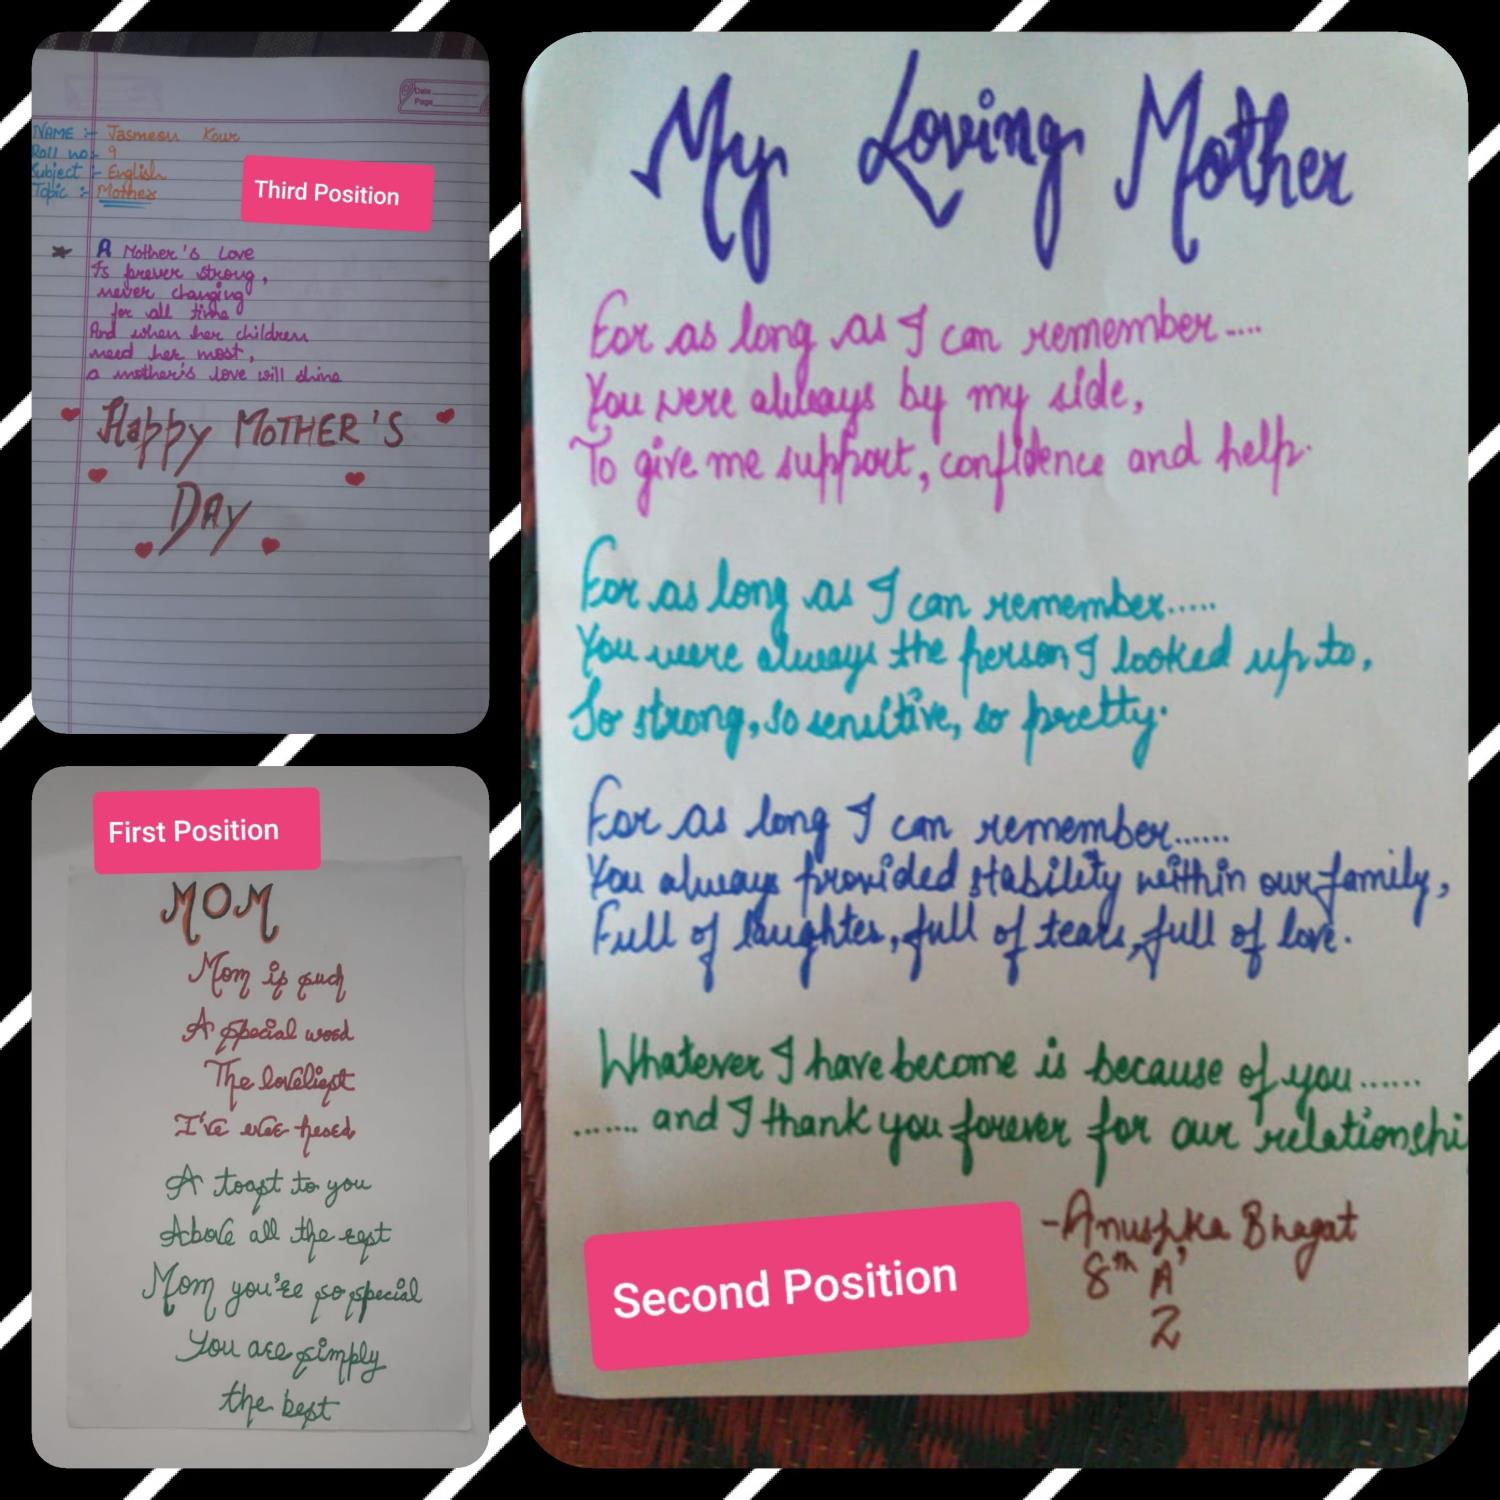 Date
Page
NAME :- Jasmeen Kour
Roll no:- 9
Subject :- English
Topic :- Mother
Third Position
A Mother's Love
Is forever strong,
never changing
for all time
And when her children
need her most,
a mother's love will shine
Happy MOTHER'S
DAY
First Position
MOM
Mom is such
A special word
The loveliest
I've ever heard
A toast to you
Above all the rest
Mom you're so special
You are simply
the best
My Loving Mother
For as long as I can remember....
You were always by my side,
To give me support, confidence and help.
For as long as I can remember.....
You were always the person I looked up to,
So strong, so sensitive, so pretty.
For as long I can remember......
You always provided stability within our family,
Full of laughter, full of tears, full of love.
Whatever I have become is because of you......
....... and I thank you forever for our relationshi
Second Position
-Anushka Bhagat
8th 'A'
2